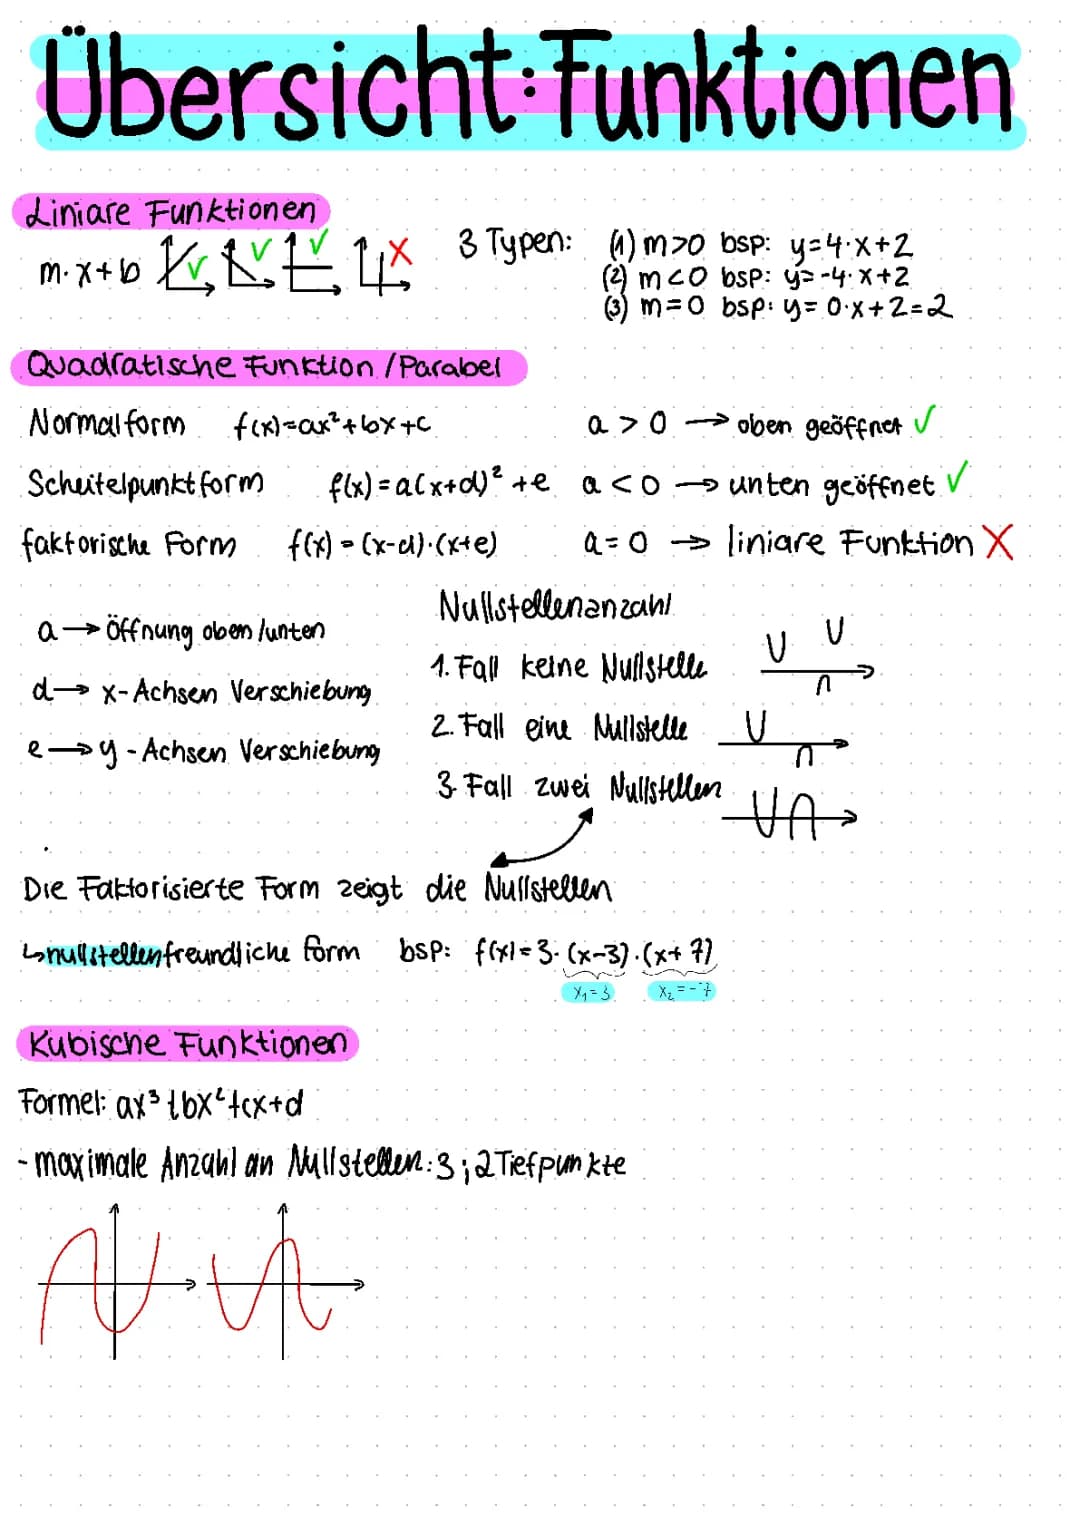 Übersicht: Funktionen
Liniare Funktionen
m·x+b
3 Typen: (1) m>0 bsp: y=4·x+2
(2) m<0 bsp: y=-4·x+2
(3) m=0 bsp: y= 0·x+2=2
Quadratische Funktion / Parabel
Normalform f(x)=ax²+bx+c a > 0 → oben geöffnet ✓
Scheitelpunktform f(x)=a(x+d)²+e a < 0 → unten geöffnet ✓
faktorische Form f(x)=(x-d)·(x+e) a= 0 → liniare Funktion X
Nullstellenanzahl
a → Öffnung oben/unten
1. Fall keine Nullstelle
d → x-Achsen Verschiebung
2. Fall eine Nullstelle
e → y-Achsen Verschiebung
3. Fall zwei Nullstellen
Die Faktorisierte Form zeigt die Nullstellen
↳nullstellenfreundliche Form bsp: f(x)=3·(x-3)·(x+7)
x₁=3 x₂=-7
Kubische Funktionen
Formel: ax³+bx²+cx+d
- maximale Anzahl an Nullstellen: 3 ; 2 Tiefpunkte